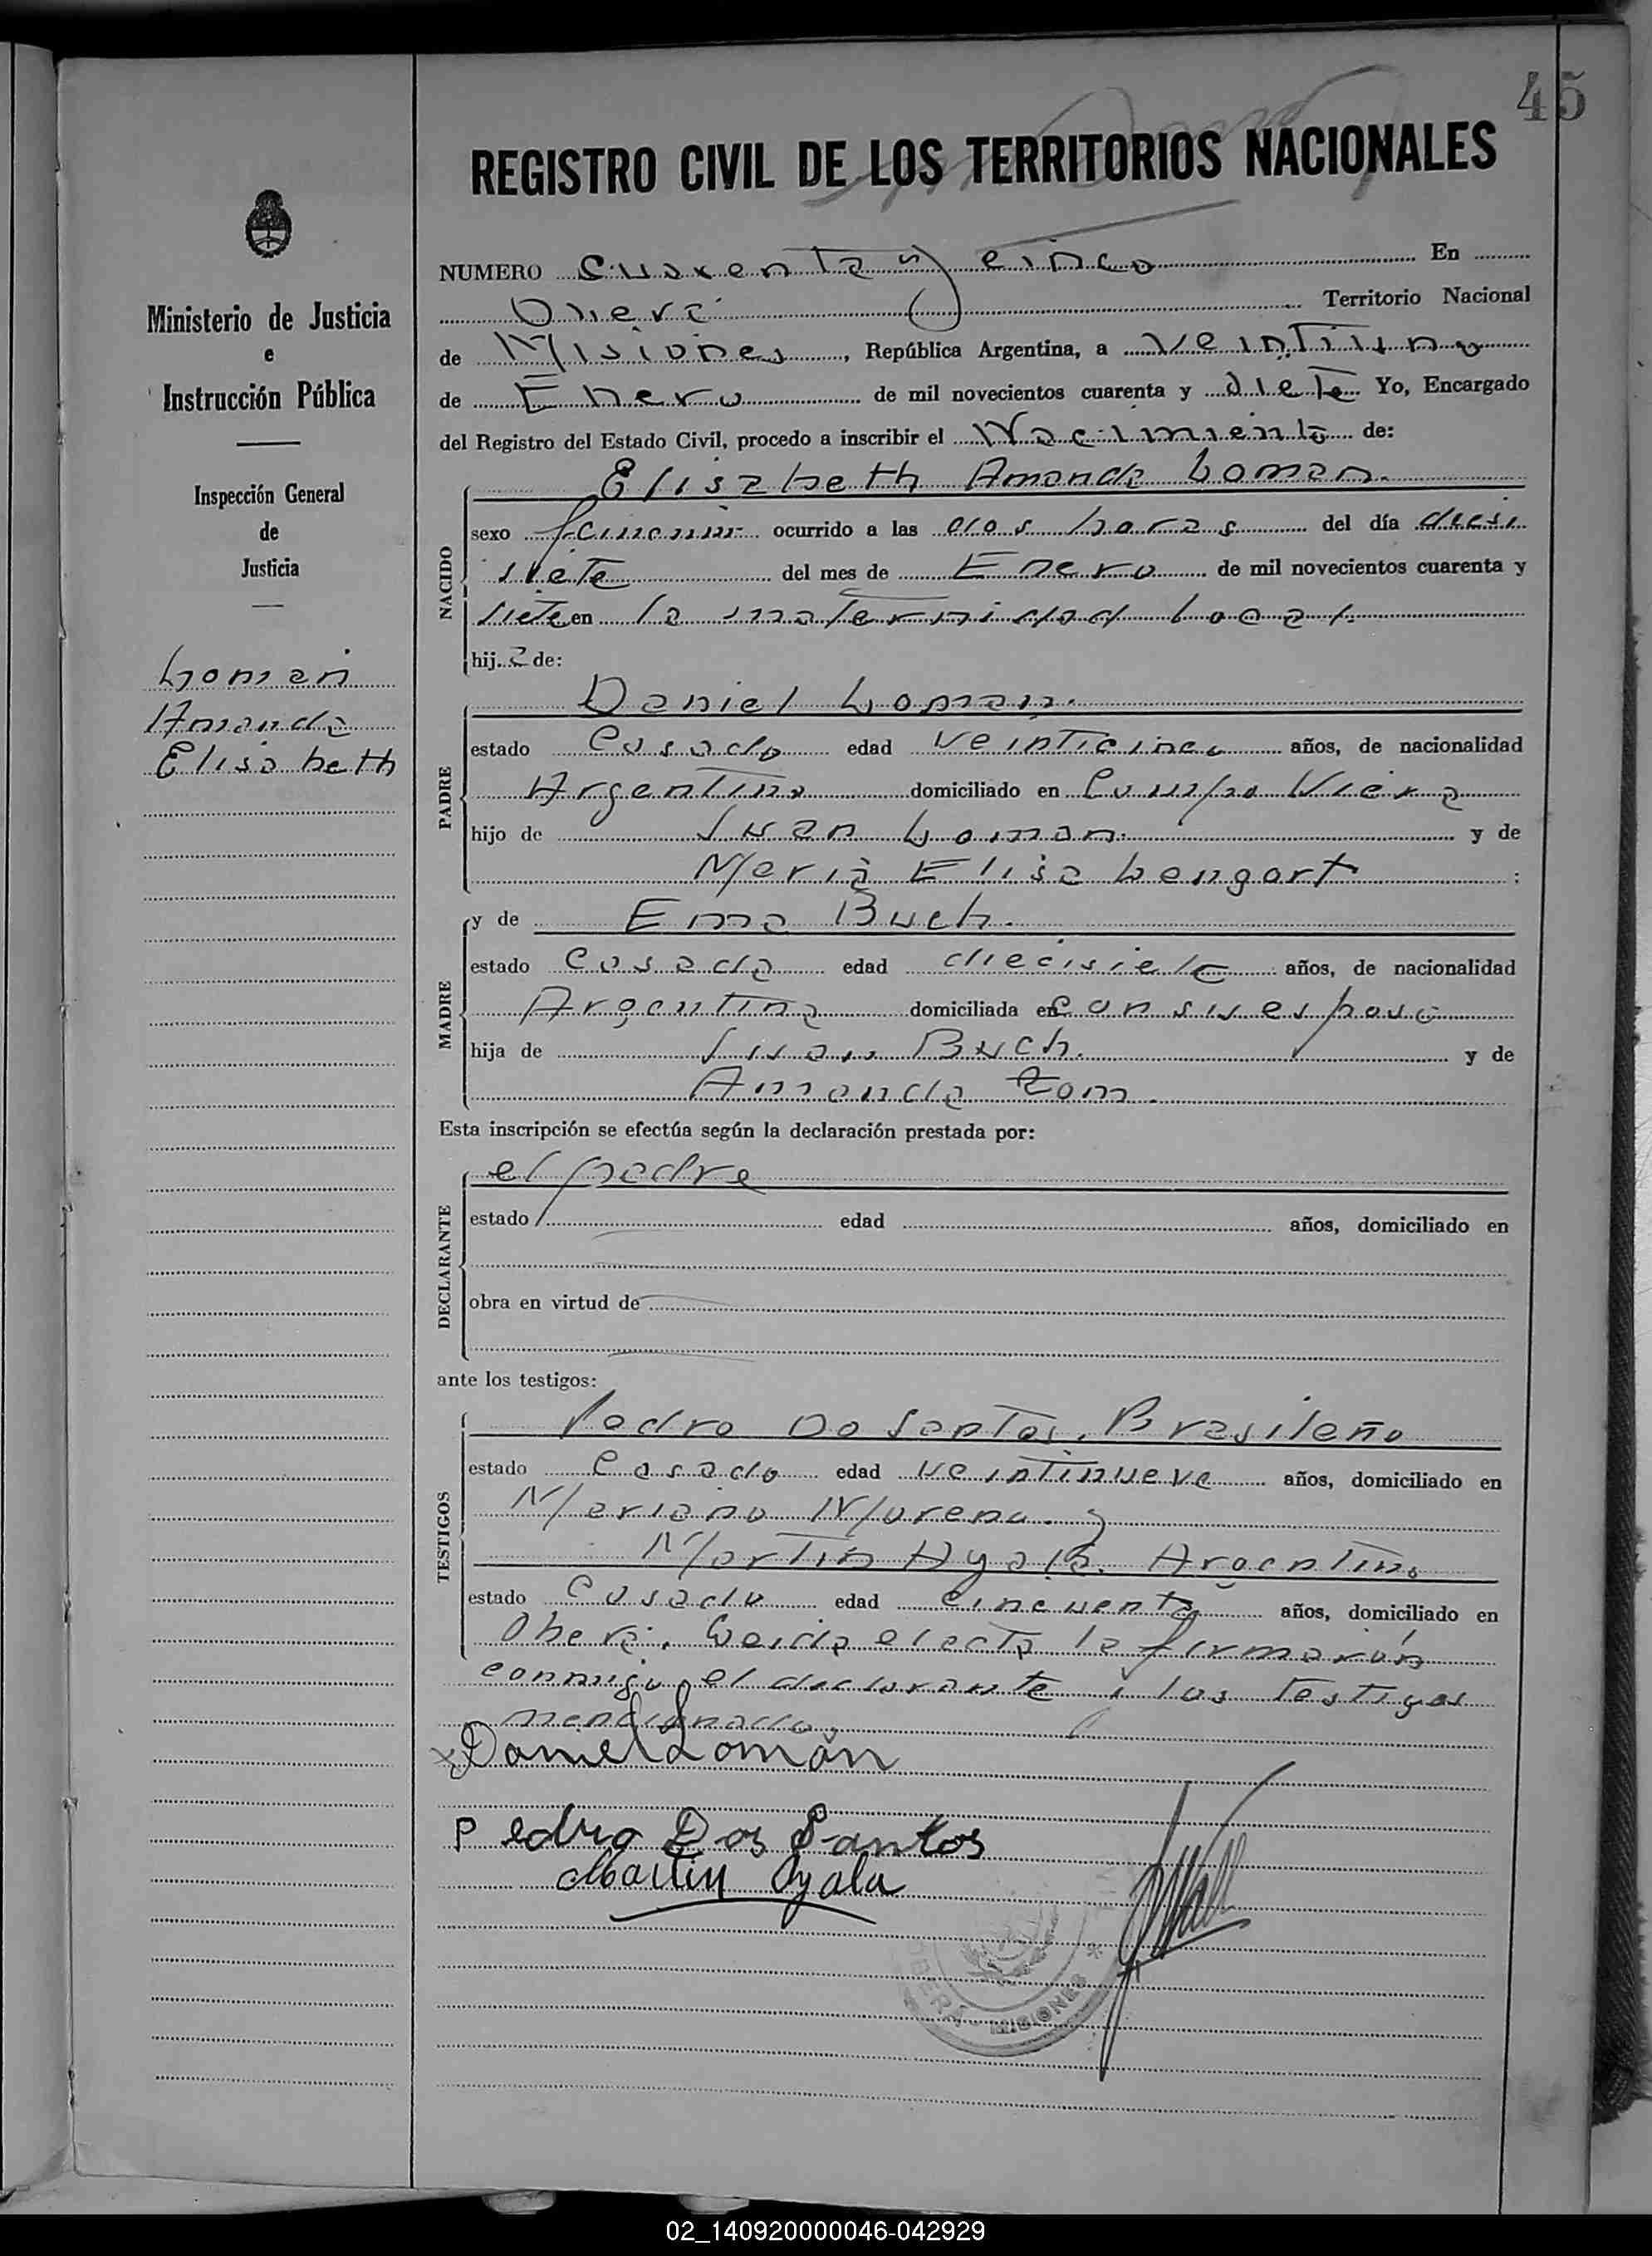 45
REGISTRO CIVIL DE LOS TERRITORIOS NACIONALES
Ministerio de Justicia
e
Instrucción Pública
Inspección General
de
Justicia
Loman
Amanda
Elisabeth
NUMERO cuarenta y cinco En
Oberá Territorio Nacional
de Misiones, República Argentina, a veintiuno
de Enero de mil novecientos cuarenta y siete Yo, Encargado
del Registro del Estado Civil, procedo a inscribir el Nacimiento de:
NACIDO
Elisabeth Amanda Loman.
sexo femenin ocurrido a las dos horas del día dieci
siete del mes de Enero de mil novecientos cuarenta y
siete en la maternidad local.
hija de:
PADRE
Daniel Loman.
estado Casado edad veinticinco años, de nacionalidad
Argentino domiciliado en Campo Viera
hijo de Juan Loman. y de
Maria Elisa Wengart ;
MADRE
y de Ema Buch.
estado Casada edad diecisiete años, de nacionalidad
Argentina domiciliada en con su esposo
hija de Juan Buch. y de
Amanda Zom.
Esta inscripción se efectúa según la declaración prestada por:
DECLARANTE
el padre
estado edad años, domiciliado en
obra en virtud de
ante los testigos:
TESTIGOS
Pedro Do Santos, Brasileño
estado Casado edad veintinueve años, domiciliado en
Mariano Moreno. y
Martin Ayala. Argentino
estado Casado edad cincuenta años, domiciliado en
Oberá. Leida el acta la firmarón
conmigo el declarante i los testigos
mencionados
x Daniel Lomán
Pedro Dos Santos
Martin Ayala
OBERÁ MISIONES *
02_140920000046-042929